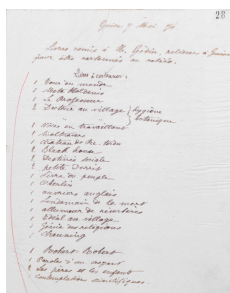 28
Genève 7 Mai 96
Livres remis à M. Gédin, relieur à Genève
pour être cartonnés ou reliés.
1 Tour du monde
1 Le Professeur
2 Docteur au village } hygiène
botanique
1 Vivre en travaillant
1 Molière
1 château de
1 Black house
1 Destinée sociale
2 petite Dorrit
1 Livre du peuple
1 Oberlin
1 ouvriers anglais
1 Lendemain de la mort
1 allumeur de réverbères
1 Idéal au village
1 Génie des religions
1 Channing
1 Robert-Robert
1 Paroles d'un croyant
2 Les pères et les enfants
1 Contemplations scientifiques